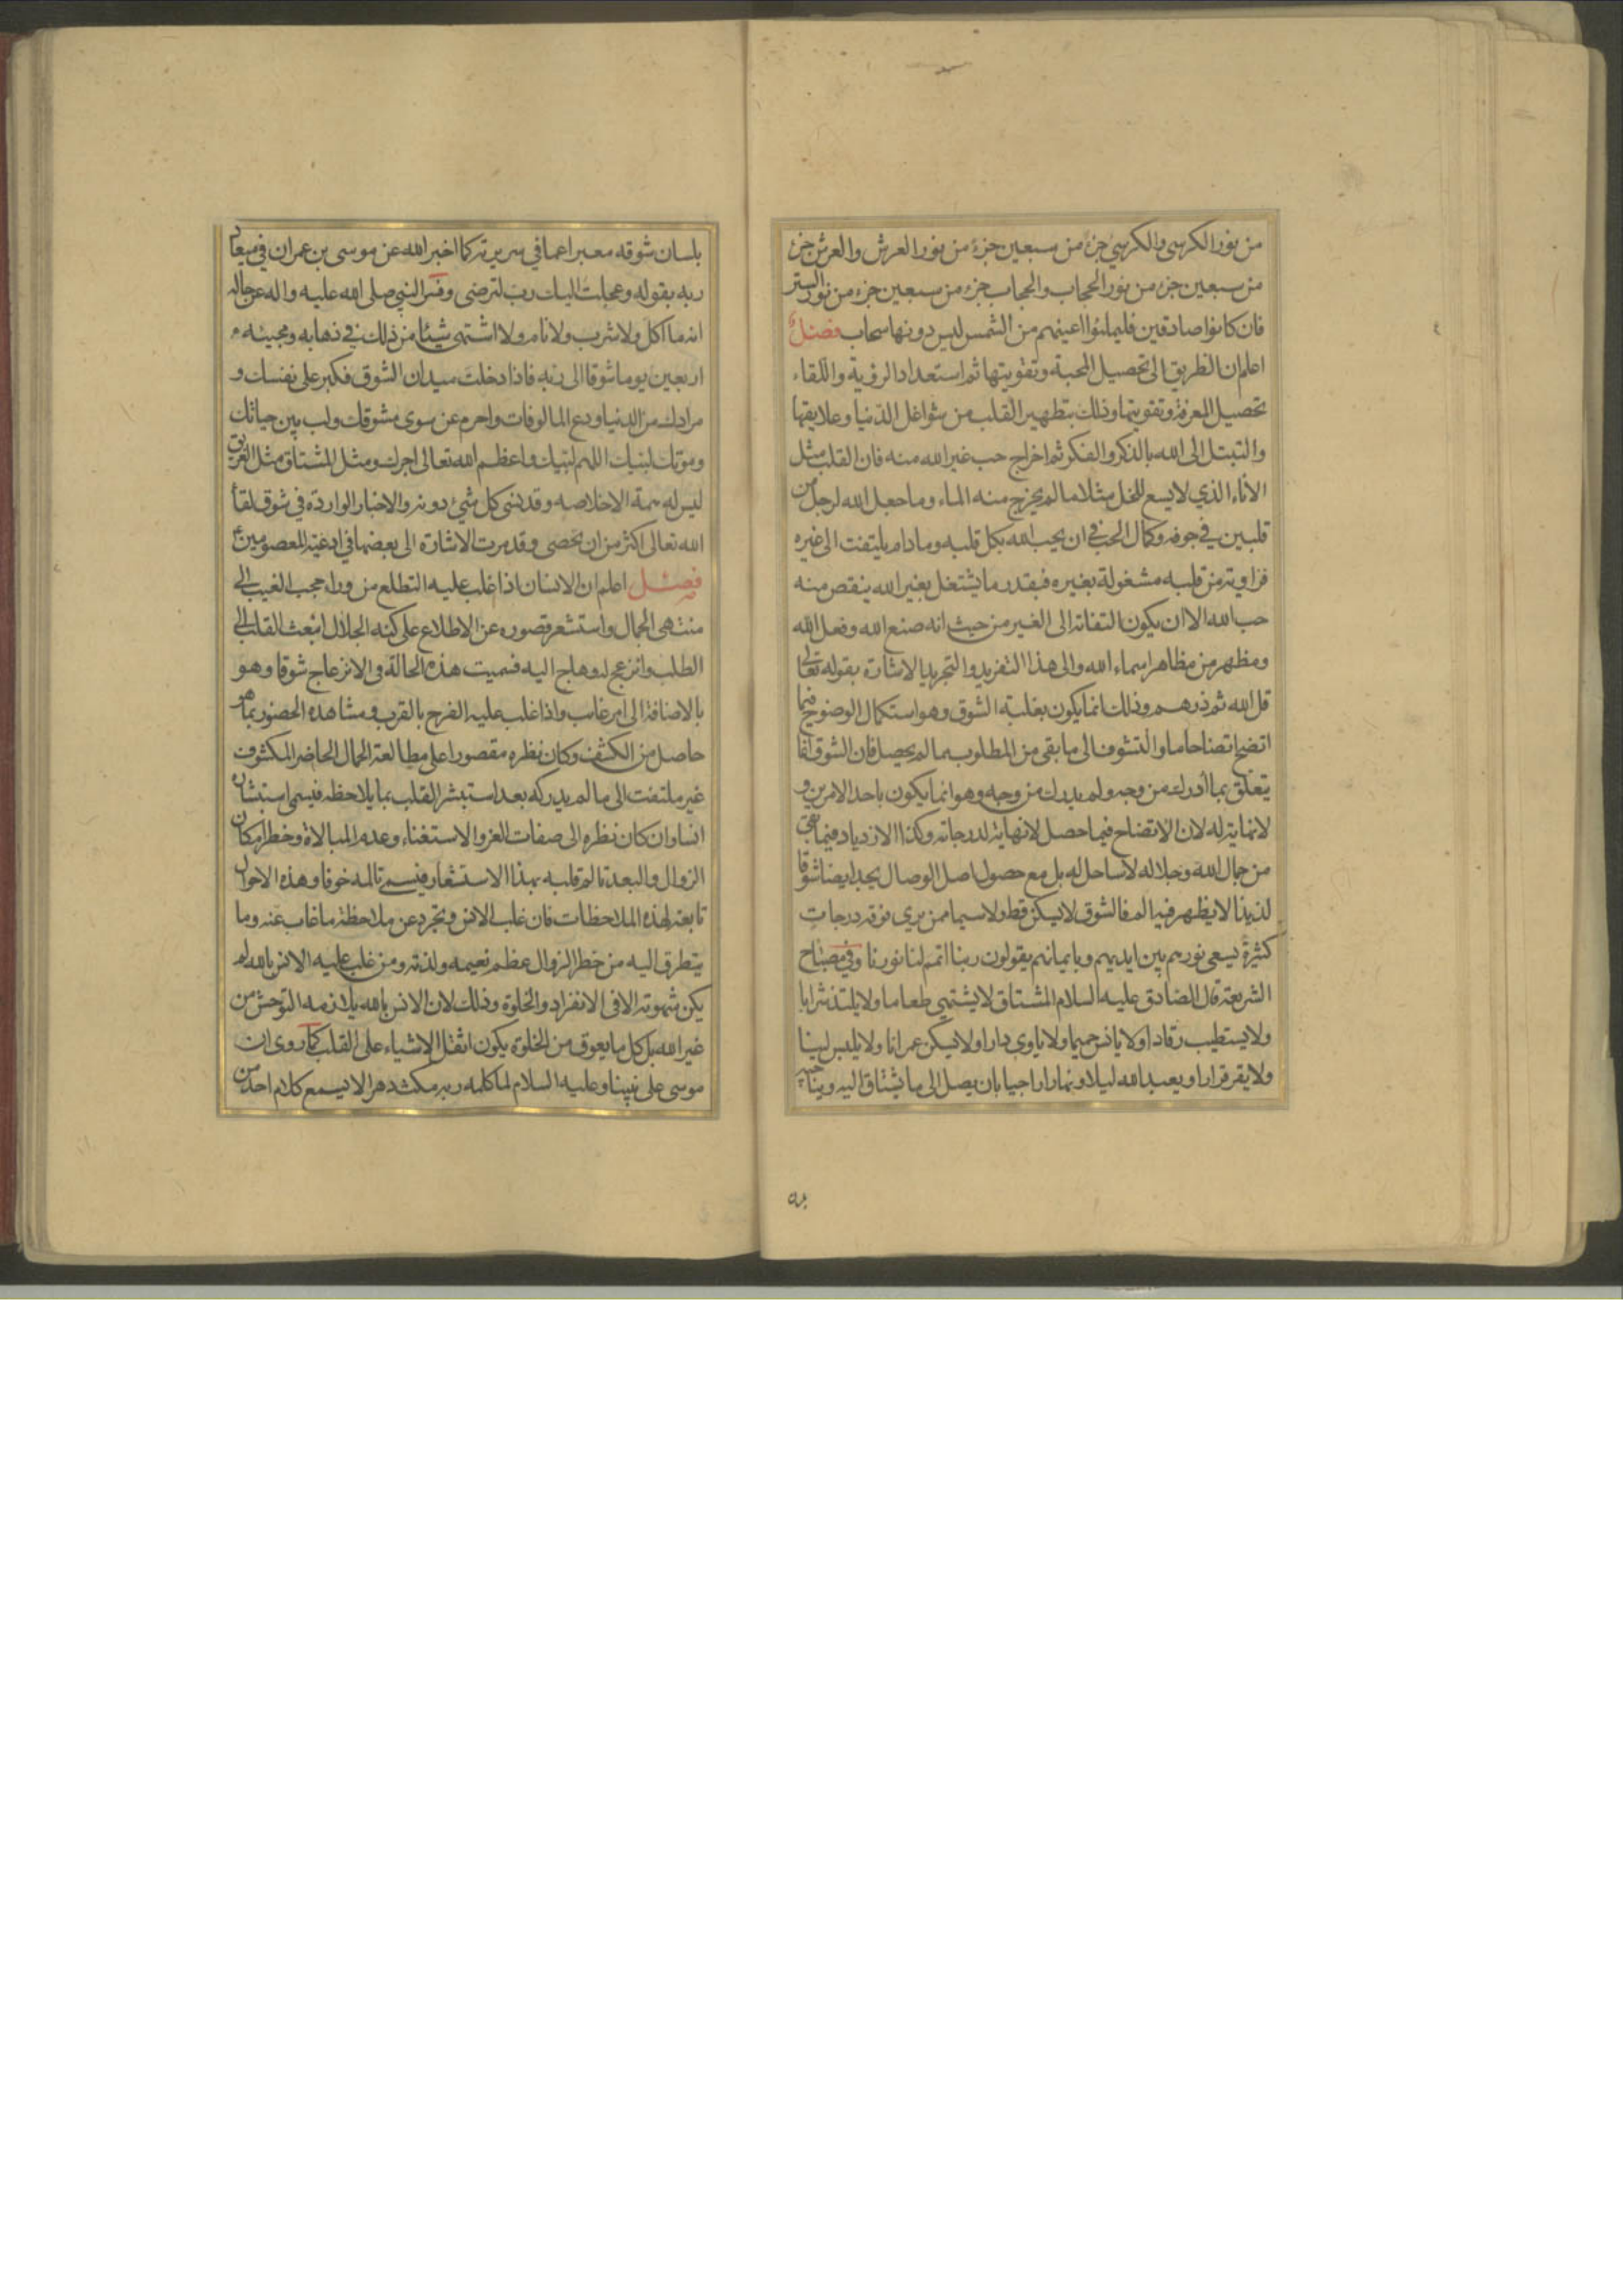 من نور الكرسی والكرسي جزء من سبعين جزء من نور العرش والعرش جزء
من سبعين جزء من نور الحجاب والحجاب جزء من سبعين جزء من نور الستر
فان كانوا صادقين فليملئوا اعينهم من الشمس ليس دونها سحاب فصل
اعلم ان الطريق الى تحصيل المحبة وتقويتها ثم استعداد الرؤية واللقاء
تحصيل المعرفة وتقويتها وذلك بتطهير القلب من شواغل الدنيا وعلايقها
والتبتل الى الله بالذكر والفكر ثم اخراج حب غير الله منه فان القلب مثل
الاناء الذي لا يسع للخل مثلا ما لم يخرج منه الماء وما جعل الله لرجل من
قلبين في جوفه وكمال الحب في ان يحب الله بكل قلبه وما دام يلتفت الى غيره
فزاوية من قلبه مشغولة بغيره فبقدر ما يشتغل بغير الله ينقص منه
حب الله الا ان يكون التفاته الى الغير من حيث انه صنع الله وفعل الله
ومظهر من مظاهر اسماء الله والى هذا التفريد والتجريد الاشارة بقوله تعالى
قل الله ثم ذرهم وذلك انما يكون بغلبة الشوق وهو استكمال الوضوح فيما
اتضح اتضاحا ما والتشوف الى ما بقى من المطلوب مما لم يحصل فان الشوق انما
يتعلق بما ادرك من وجه ولم يدرك من وجه وهو انما يكون باحد الامرين و
لا نهاية له لان الاتضاح فيما حصل لا نهاية لدرجاته وكذا الازدياد فيما بقى
من جمال الله وجلاله لا ساحل له بل مع حصول اصل الوصال يجد ايضا شوقا
لذيذا لا يظهر فيه الم فالشوق لا يسكن قط ولا سيما ممن يرى فوقه درجات
كثيرة يسعى نورهم بين ايديهم وبايمانهم يقولون ربنا اتمم لنا نورنا وفي مصباح
الشريعة قال الصادق عليه السلام المشتاق لا يشتهي طعاما ولا يلتذ شرابا
ولا يستطيب رقادا ولا يانس حميما ولا ياوى دارا ولا يسكن عمرانا ولا يلبس لينا
ولا يقر قرارا ويعبد الله ليلا ونهارا راجيا بان يصل الى ما يشتاق اليه ويناجيه
بلسان شوقه معبرا عما في سريرته كما اخبر الله عن موسى بن عمران في ميعاد
ربه بقوله وعجلت اليك رب لترضى وفسر النبي صلى الله عليه واله عن حاله
انه ما اكل ولا شرب ولا نام ولا اشتهى شيئا من ذلك في ذهابه ومجيئه
اربعين يوما شوقا الى ربه فاذا دخلت ميدان الشوق فكبر على نفسك و
مرادك من الدنيا ودع المالوفات واحرم عن سوى مشوقك ولب بين حياتك
وموتك لبيك اللهم لبيك واعظم الله تعالى اجرك ومثل المشتاق مثل الغريق
ليس له همة الا خلاصه وقد نسى كل شئ دونه والاخبار الواردة في شوق لقاء
الله تعالى اكثر من ان تحصى وقد مرت الاشارة الى بعضها في ادعية المعصومين ع
فصل اعلم ان الانسان اذا غلب عليه التطلع من وراء حجب الغيب الى
منتهى الجمال واستشعر قصوره عن الاطلاع على كنه الجلال انبعث القلب الى
الطلب وانزعج له وهاج اليه فسميت هذه الحالة في الانزعاج شوقا وهو
بالاضافة الى امر غائب واذا غلب عليه الفرح بالقرب ومشاهدة الحضور بما هو
حاصل من الكشف وكان نظره مقصورا على مطالعة الجمال الحاضر المكشوف
غير ملتفت الى ما لم يدركه بعد استبشر القلب بما يلاحظه فيسمى استبشاره
انسا وان كان نظره الى صفات العز والاستغناء وعدم المبالاة وخطر امكان
الزوال والبعد تالم قلبه بهذا الاستشعار فيسمى تالمه خوفا وهذه الاحوال
تابعة لهذه الملاحظات فان غلب الانس وتجرد عن ملاحظة ما غاب عنه وما
يتطرق اليه من خطر الزوال عظم نعيمه ولذته ومن غلب عليه الانس بالله لم
يكن شهوته الا في الانفراد والخلوة وذلك لان الانس بالله يلازمه التوحش من
غير الله بل كل ما يعوق من الخلوة يكون اثقل الاشياء على القلب كما روى ان
موسى على نبينا وعليه السلام لما كلمه ربه مكث دهرا لا يسمع كلام احد من